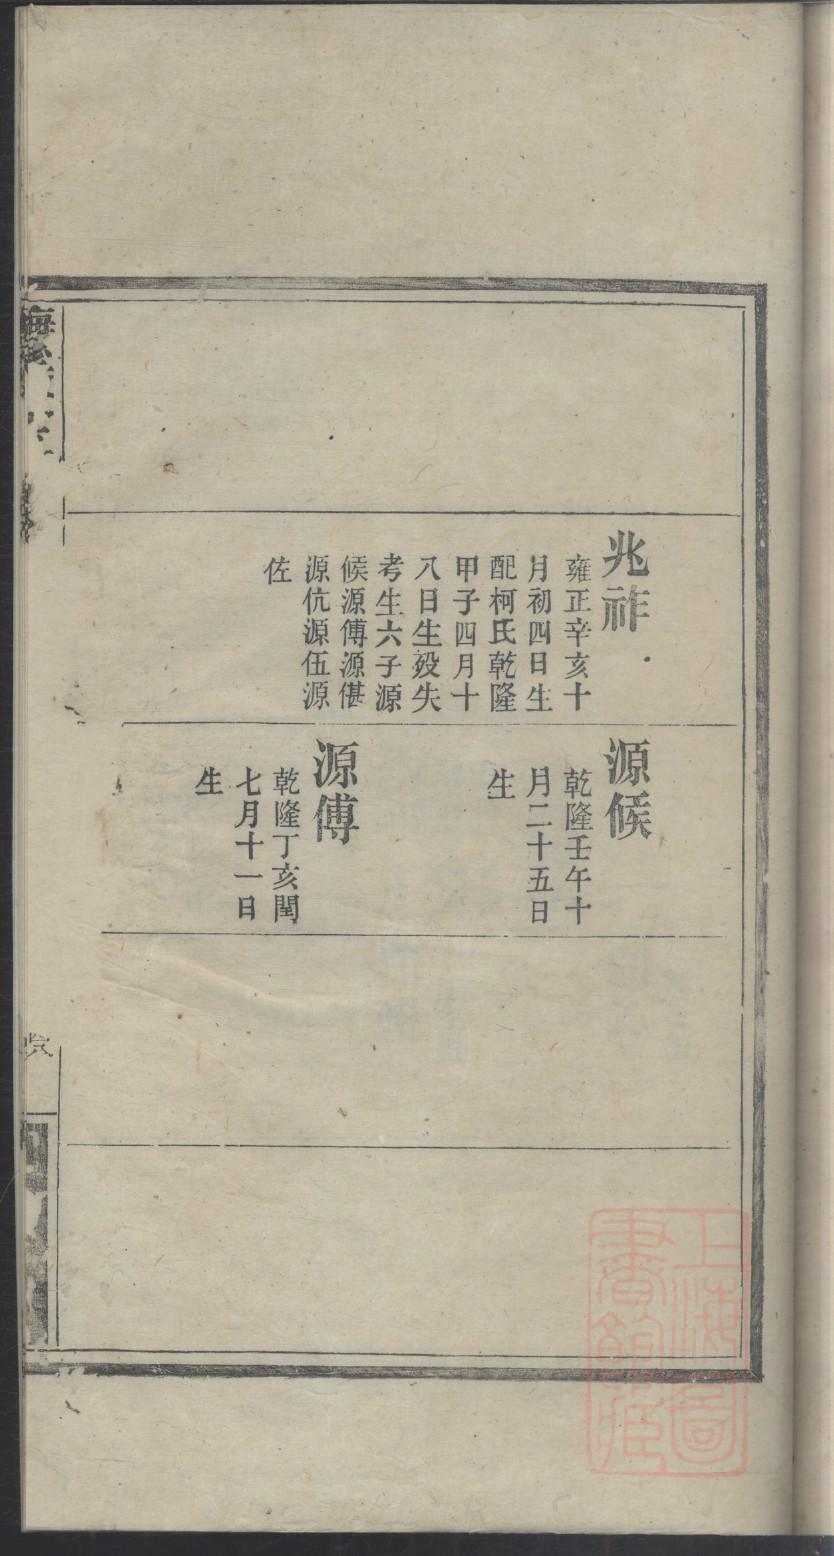 兆祚
雍正辛亥十
月初四日生
配柯氏乾隆
甲子四月十
八日生殁失
考生六子源
候源傅源偡
源伉源伍源
佐
源候
乾隆壬午十
月二十五日
生
源傅
乾隆丁亥閏
七月十一日
生
上海圖
書館藏